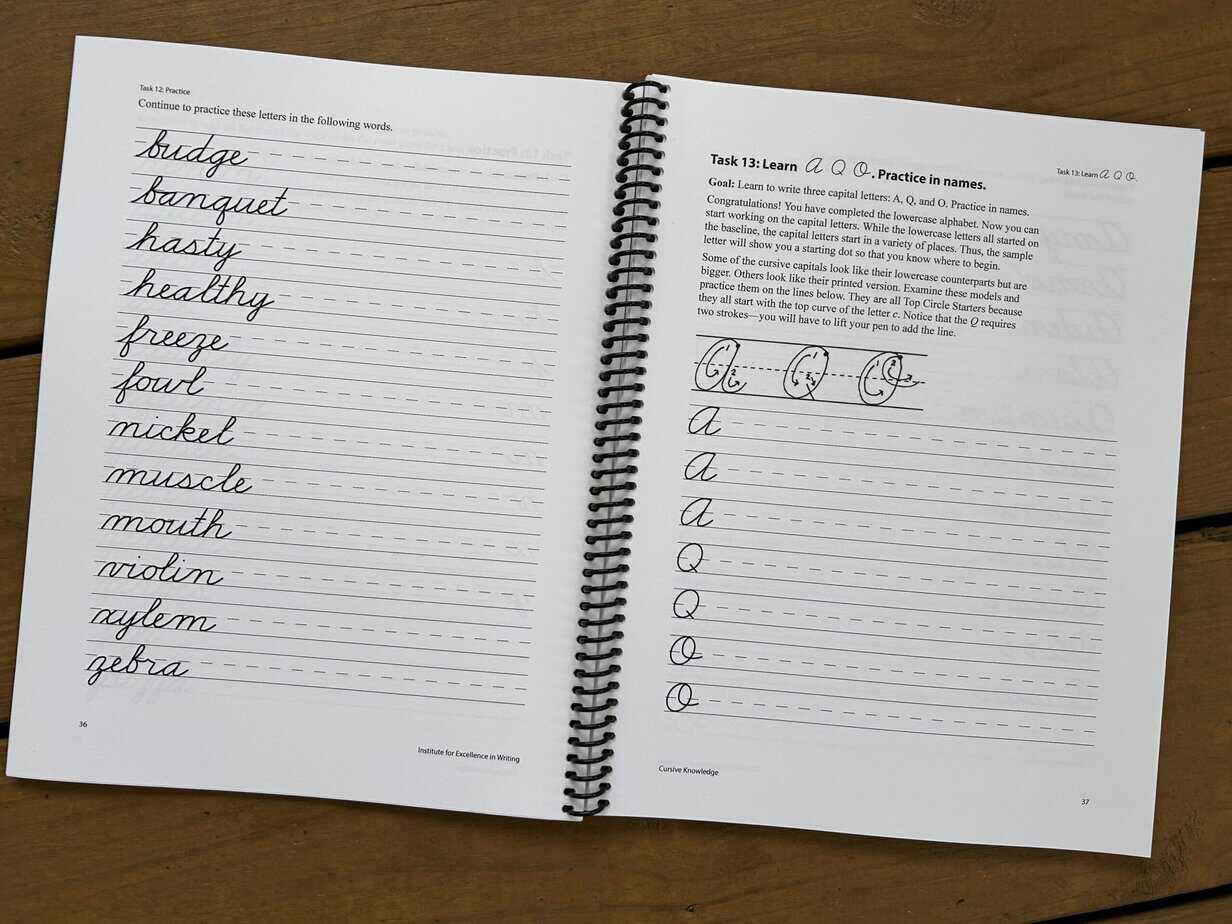 Task 12: Practice
Continue to practice these letters in the following words.
budge
banquet
hasty
healthy
freeze
fowl
nickel
muscle
mouth
violin
xylem
zebra
36
Institute for Excellence in Writing
Task 13: Learn A Q O.
Task 13: Learn A Q O. Practice in names.
Goal: Learn to write three capital letters: A, Q, and O. Practice in names.
Congratulations! You have completed the lowercase alphabet. Now you can
start working on the capital letters. While the lowercase letters all started on
the baseline, the capital letters start in a variety of places. Thus, the sample
letter will show you a starting dot so that you know where to begin.
Some of the cursive capitals look like their lowercase counterparts but are
bigger. Others look like their printed version. Examine these models and
practice them on the lines below. They are all Top Circle Starters because
they all start with the top curve of the letter c. Notice that the Q requires
two strokes—you will have to lift your pen to add the line.
A Q O
A
A
A
Q
Q
O
O
Cursive Knowledge
37